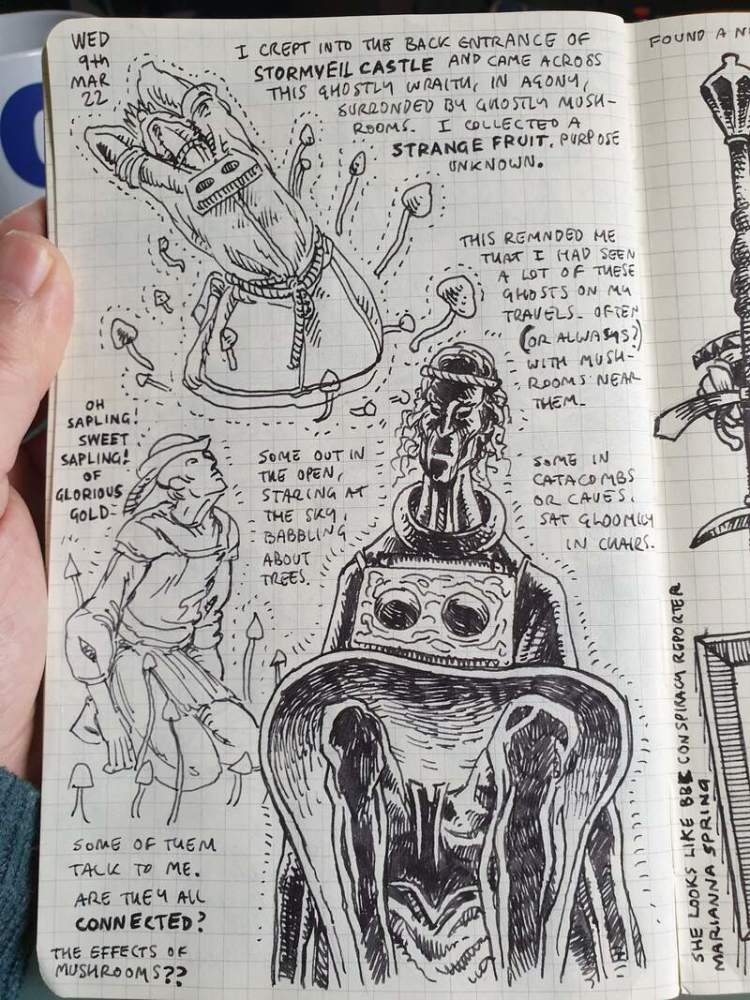 WED
9th
MAR
22
I CREPT INTO THE BACK ENTRANCE OF
STORMVEIL CASTLE AND CAME ACROSS
THIS GHOSTLY WRAITH, IN AGONY,
SURRONDED BY GHOSTLY MUSH-
ROOMS. I COLLECTED A
STRANGE FRUIT, PURPOSE
UNKNOWN.
THIS REMNDED ME
THAT I HAD SEEN
A LOT OF THESE
GHOSTS ON MY
TRAVELS. OFTEN
(OR ALWAYS?)
WITH MUSH-
ROOMS NEAR
THEM.
OH
SAPLING!
SWEET
SAPLING!
OF
GLORIOUS
GOLD-
SOME OUT IN
THE OPEN,
STARING AT
THE SKY,
BABBLING
ABOUT
TREES.
SOME IN
CATACOMBS
OR CAVES.
SAT GLOOMILY
IN CHAIRS.
SOME OF THEM
TALK TO ME.
ARE THEY ALL
CONNECTED?
THE EFFECTS OF
MUSHROOMS??
FOUND A
SHE LOOKS LIKE BBC CONSPIRACY REPORTER
MARIANNA SPRING